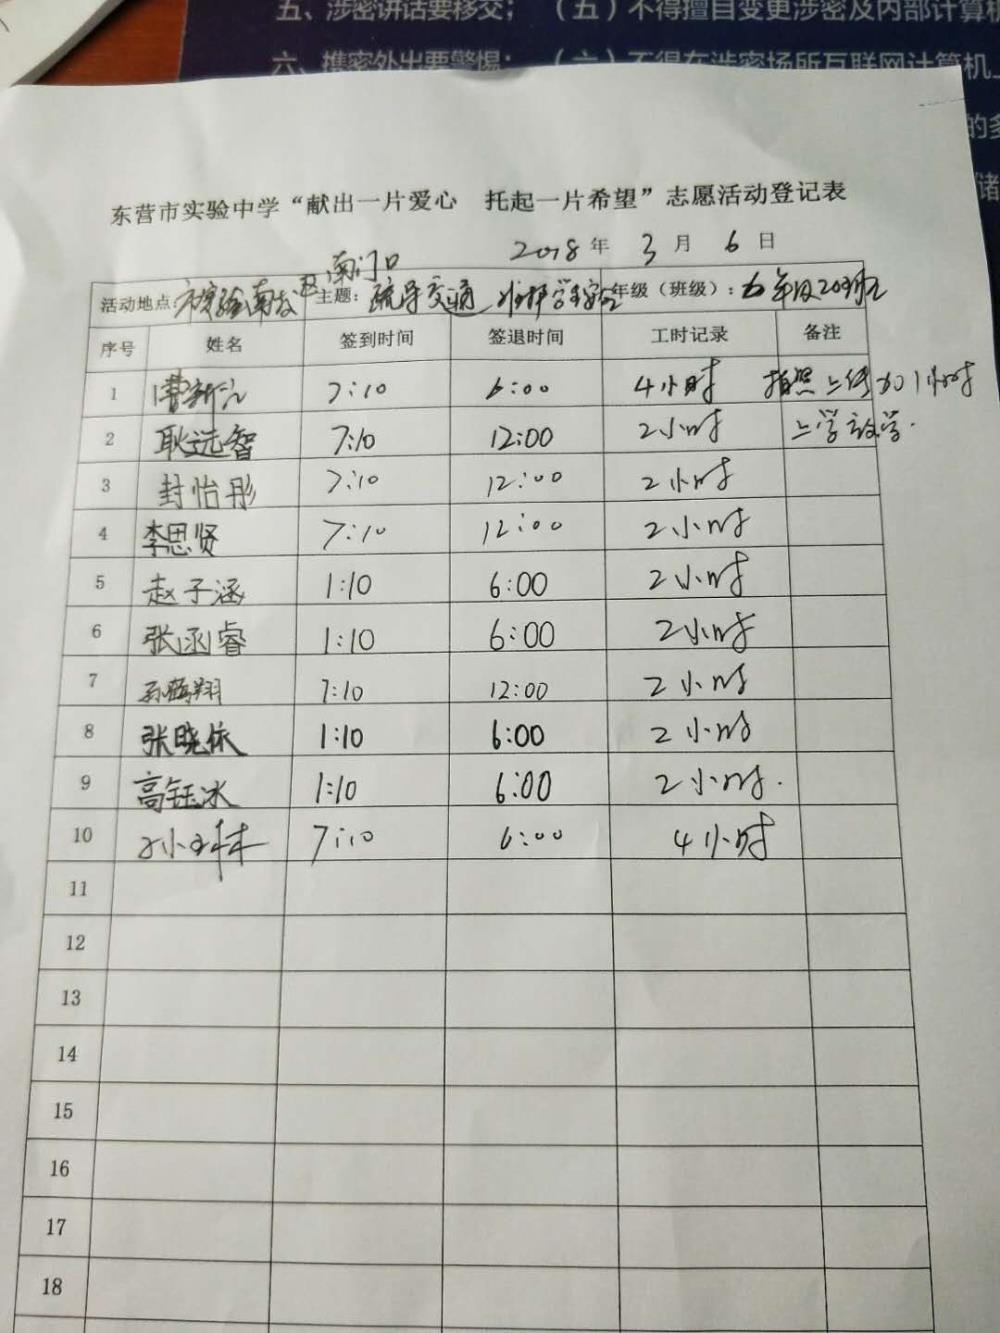 五、涉密讲话要移交；（五）不得擅自变更涉密及内部计算机
六、携密外出要警惕；（六）不得在涉密场所互联网计算机上
的多
储
东营市实验中学“献出一片爱心 托起一片希望”志愿活动登记表
2018年 3月 6日
南门口
活动地点 市实验南校区 主题：疏导交通 维护学生安全 年级（班级）：五年级20班
序号 姓名 签到时间 签退时间 工时记录 备注
1 曹新 7:10 6:00 4小时 拍照上传加1小时
2 耿选智 7:10 12:00 2小时 上学放学.
3 封怡彤 7:10 12:00 2小时
4 李思贤 7:10 12:00 2小时
5 赵子涵 1:10 6:00 2小时
6 张函睿 1:10 6:00 2小时
7 孙鹤翔 7:10 12:00 2小时
8 张晓依 1:10 6:00 2小时
9 高钰冰 1:10 6:00 2小时.
10 7:10 6:00 4小时
11
12
13
14
15
16
17
18